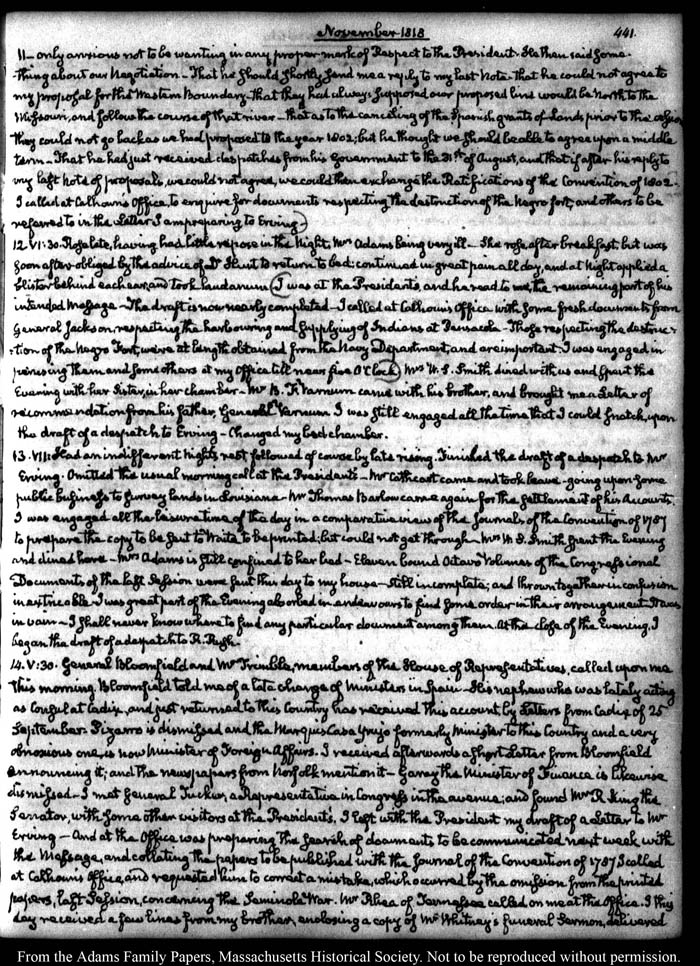 November 1818
441.
11— only anxious not to be wanting in any proper mark of Respect to the President. He then said some-
-thing about our Negotiation— That he should shortly send me a reply to my last Note— that he could not agree to
my proposal for the Western Boundary— that they had always supposed our proposed line would be North to the
Missouri, and follow the course of that river— that as to the canceling of the Spanish grants of Lands prior to the
they could not go back as we had proposed to the year 1802; but he thought we should be able to agree upon a middle
term— That he had just received despatches from his Government to the 31st of August, and that if after his reply to
my last note of proposals, we could not agree, we could then exchange the Ratifications of the Convention of 1802.
I called at Calhoun's Office, to enquire for documents respecting the destruction of the Negro fort, and others to be
referred to in the Letter I am preparing to Erving.)
12. VI:30. Rose late, having had little repose in the Night, Mrs Adams being very ill— She rose after breakfast, but was
soon after obliged by the advice of Dr Hunt to return to bed: continued in great pain all day, and at Night applied a
blister behind each ear, and took laudanum. (I was at the President's, and he read to me, the remaining part of his
intended Message— The draft is now nearly completed— I called at Calhoun's Office with some fresh documents from
General Jackson, respecting the harbouring and supplying of Indians at Pensacola— Those respecting the destruc-
-tion of the Negro Fort, were at length obtained from the Navy Department, and are important. I was engaged in
perusing them and some others at my office till near five O'Clock.) Mrs W. S. Smith dined with us and spent the
Evening with her Sister, in her chamber— Mr B. F. Varnum came with his brother, and brought me a Letter of
recommendation from his father, General Varnum. I was still engaged all the time that I could snatch, upon
the draft of a despatch to Erving— Changed my bed chamber.
13. VII: Had an indifferent Night's rest followed of course by late rising. Finished the draft of a despatch to Mr
Erving. Omitted the usual morning call at the President's— Mr Cathcart came and took leave— going upon some
public business to survey lands in Louisiana— Mr Thomas Barlow came again for the settlement of his Accounts.
I was engaged all the leisure time of the day in a comparative view of the Journals of the Convention of 1787
to prepare the copy to be sent to Waite to be printed; but could not get through— Mrs W. S. Smith spent the Evening
and dined here— Mrs Adams is still confined to her bed— Eleven bound Octavo Volumes of the Congressional
Documents of the last Session were sent this day to my house— still incomplete; and thrown together in confusion
inextricable. I was great part of the Evening absorbed in endeavours to find some order in their arrangement. It was
in vain— I shall never know where to find any particular document among them. At the close of the Evening, I
began the draft of a despatch to R. Rush.
14. V:30. General Bloomfield and Mr Trimble, members of the House of Representatives, called upon me
this morning. Bloomfield told me of a late change of Ministers in Spain. His nephew who was lately acting
as Consul at Cadiz, and just returned to this Country has received this account by Letters from Cadiz of 25
September. Pizarro is dismissed and the Marquis Casa Yrujo formerly Minister to this Country and a very
obnoxious one, is now Minister of Foreign Affairs. I received afterwards a short Letter from Bloomfield
announcing it; and the newspapers from Norfolk mention it— Garay the Minister of Finance is likewise
dismissed— I met General Tucker, a Representative in Congress in the avenue; and found Mr R. King the
Senator, with some other visitors at the President's. I left with the President my draft of a Letter to Mr
Erving— And at the Office was preparing the search of documents to be communicated next week with
the Message, and collating the papers to be published with the Journal of the Convention of 1787. I called
at Calhoun's Office, and requested him to correct a mistake, which occurred by the omission from the printed
papers, last Session, concerning the Seminole War. Mr Rhea of Tennessee called on me at the Office. I this
day received a few lines from my brother, enclosing a copy of Mr Whitney's funeral Sermon, delivered
From the Adams Family Papers, Massachusetts Historical Society. Not to be reproduced without permission.